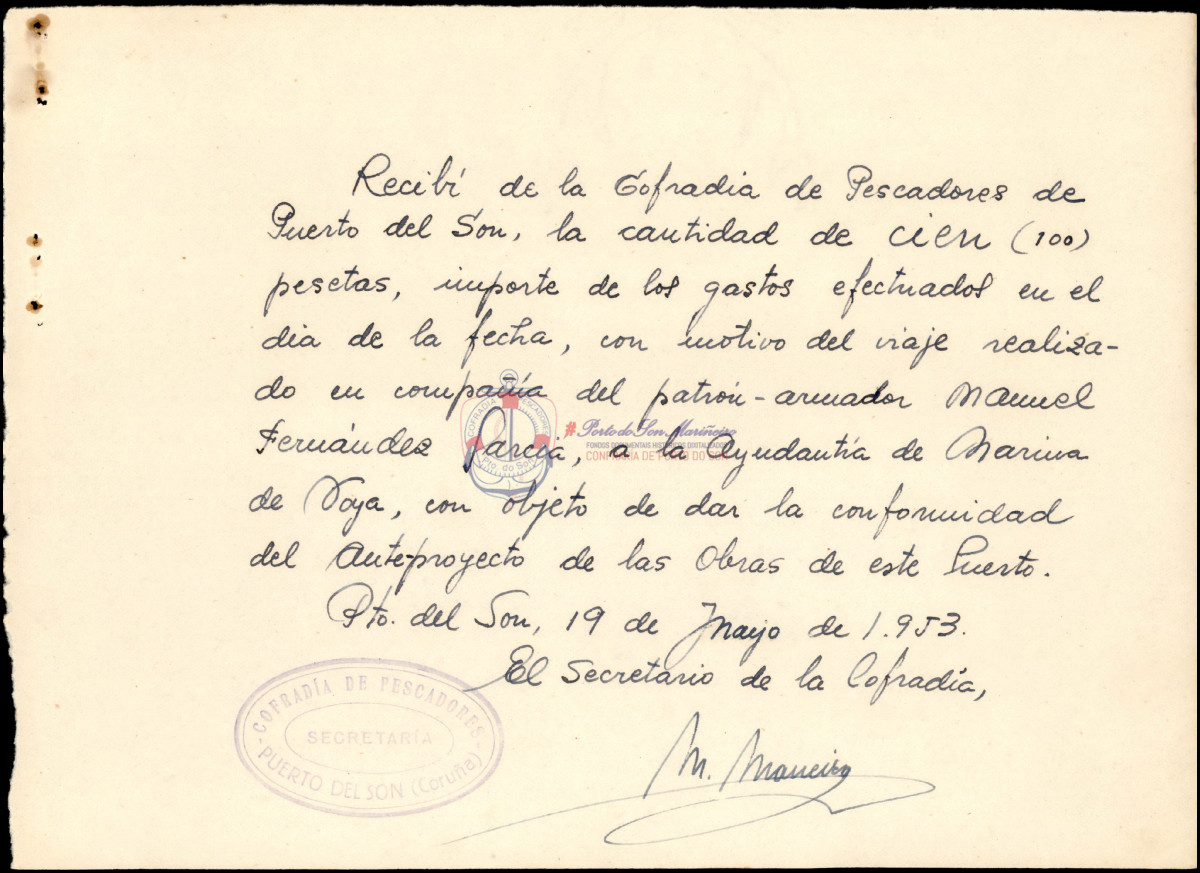 Recibí de la Cofradia de Pescadores de
Puerto del Son, la cantidad de cien (100)
pesetas, importe de los gastos efectuados en el
dia de la fecha, con motivo del viaje realiza-
do en compañia del patrón-armador Manuel
Fernández Garcia, a la Ayudantía de Marina
de Noya, con objeto de dar la conformidad
del Ante-proyecto de las Obras de este Puerto.
Pto. del Son, 19 de Mayo de 1.953.
El Secretario de la Cofradía,
M. Maneiro
COFRADÍA DE PESCADORES
SECRETARÍA
PUERTO DEL SON (Coruña)
COFRADÍA PESCADORES
Pto. do Son
#Porto do Son Mariñeiro
FONDOS DOCUMENTAIS HISTÓRICOS DIGITALIZADOS
CONFRARÍA DE PORTO DO SON